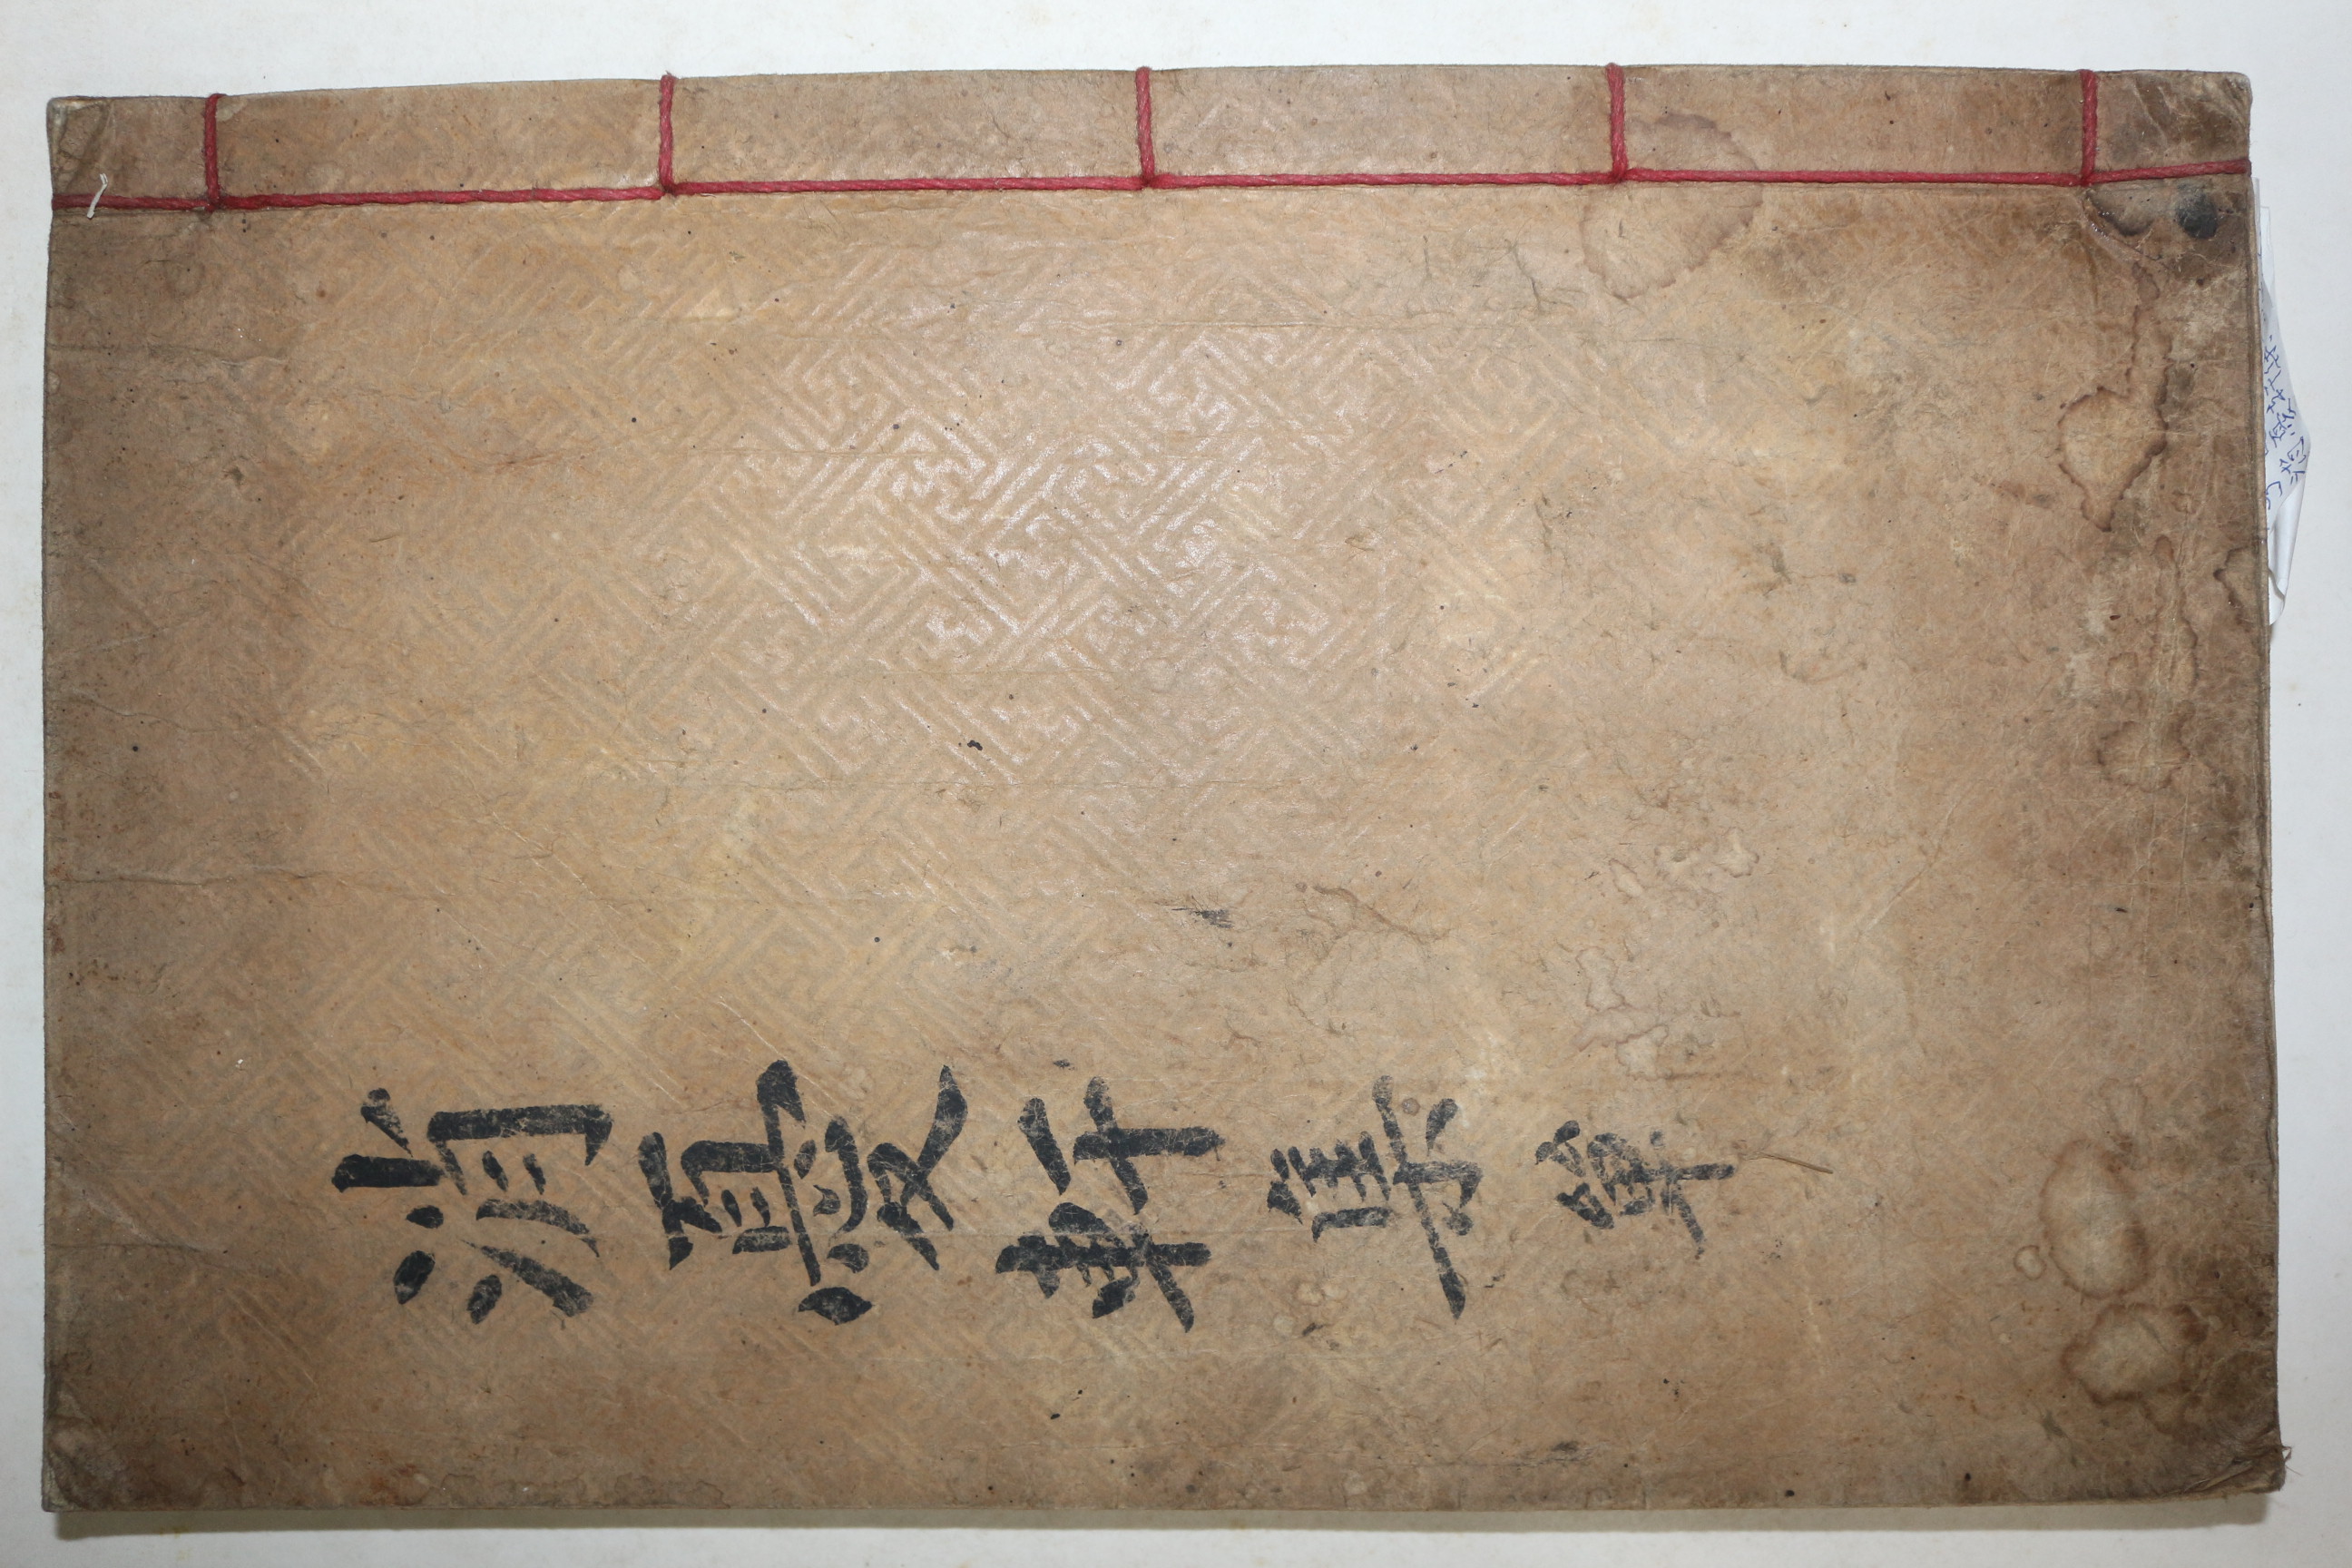 消憂軒集 單